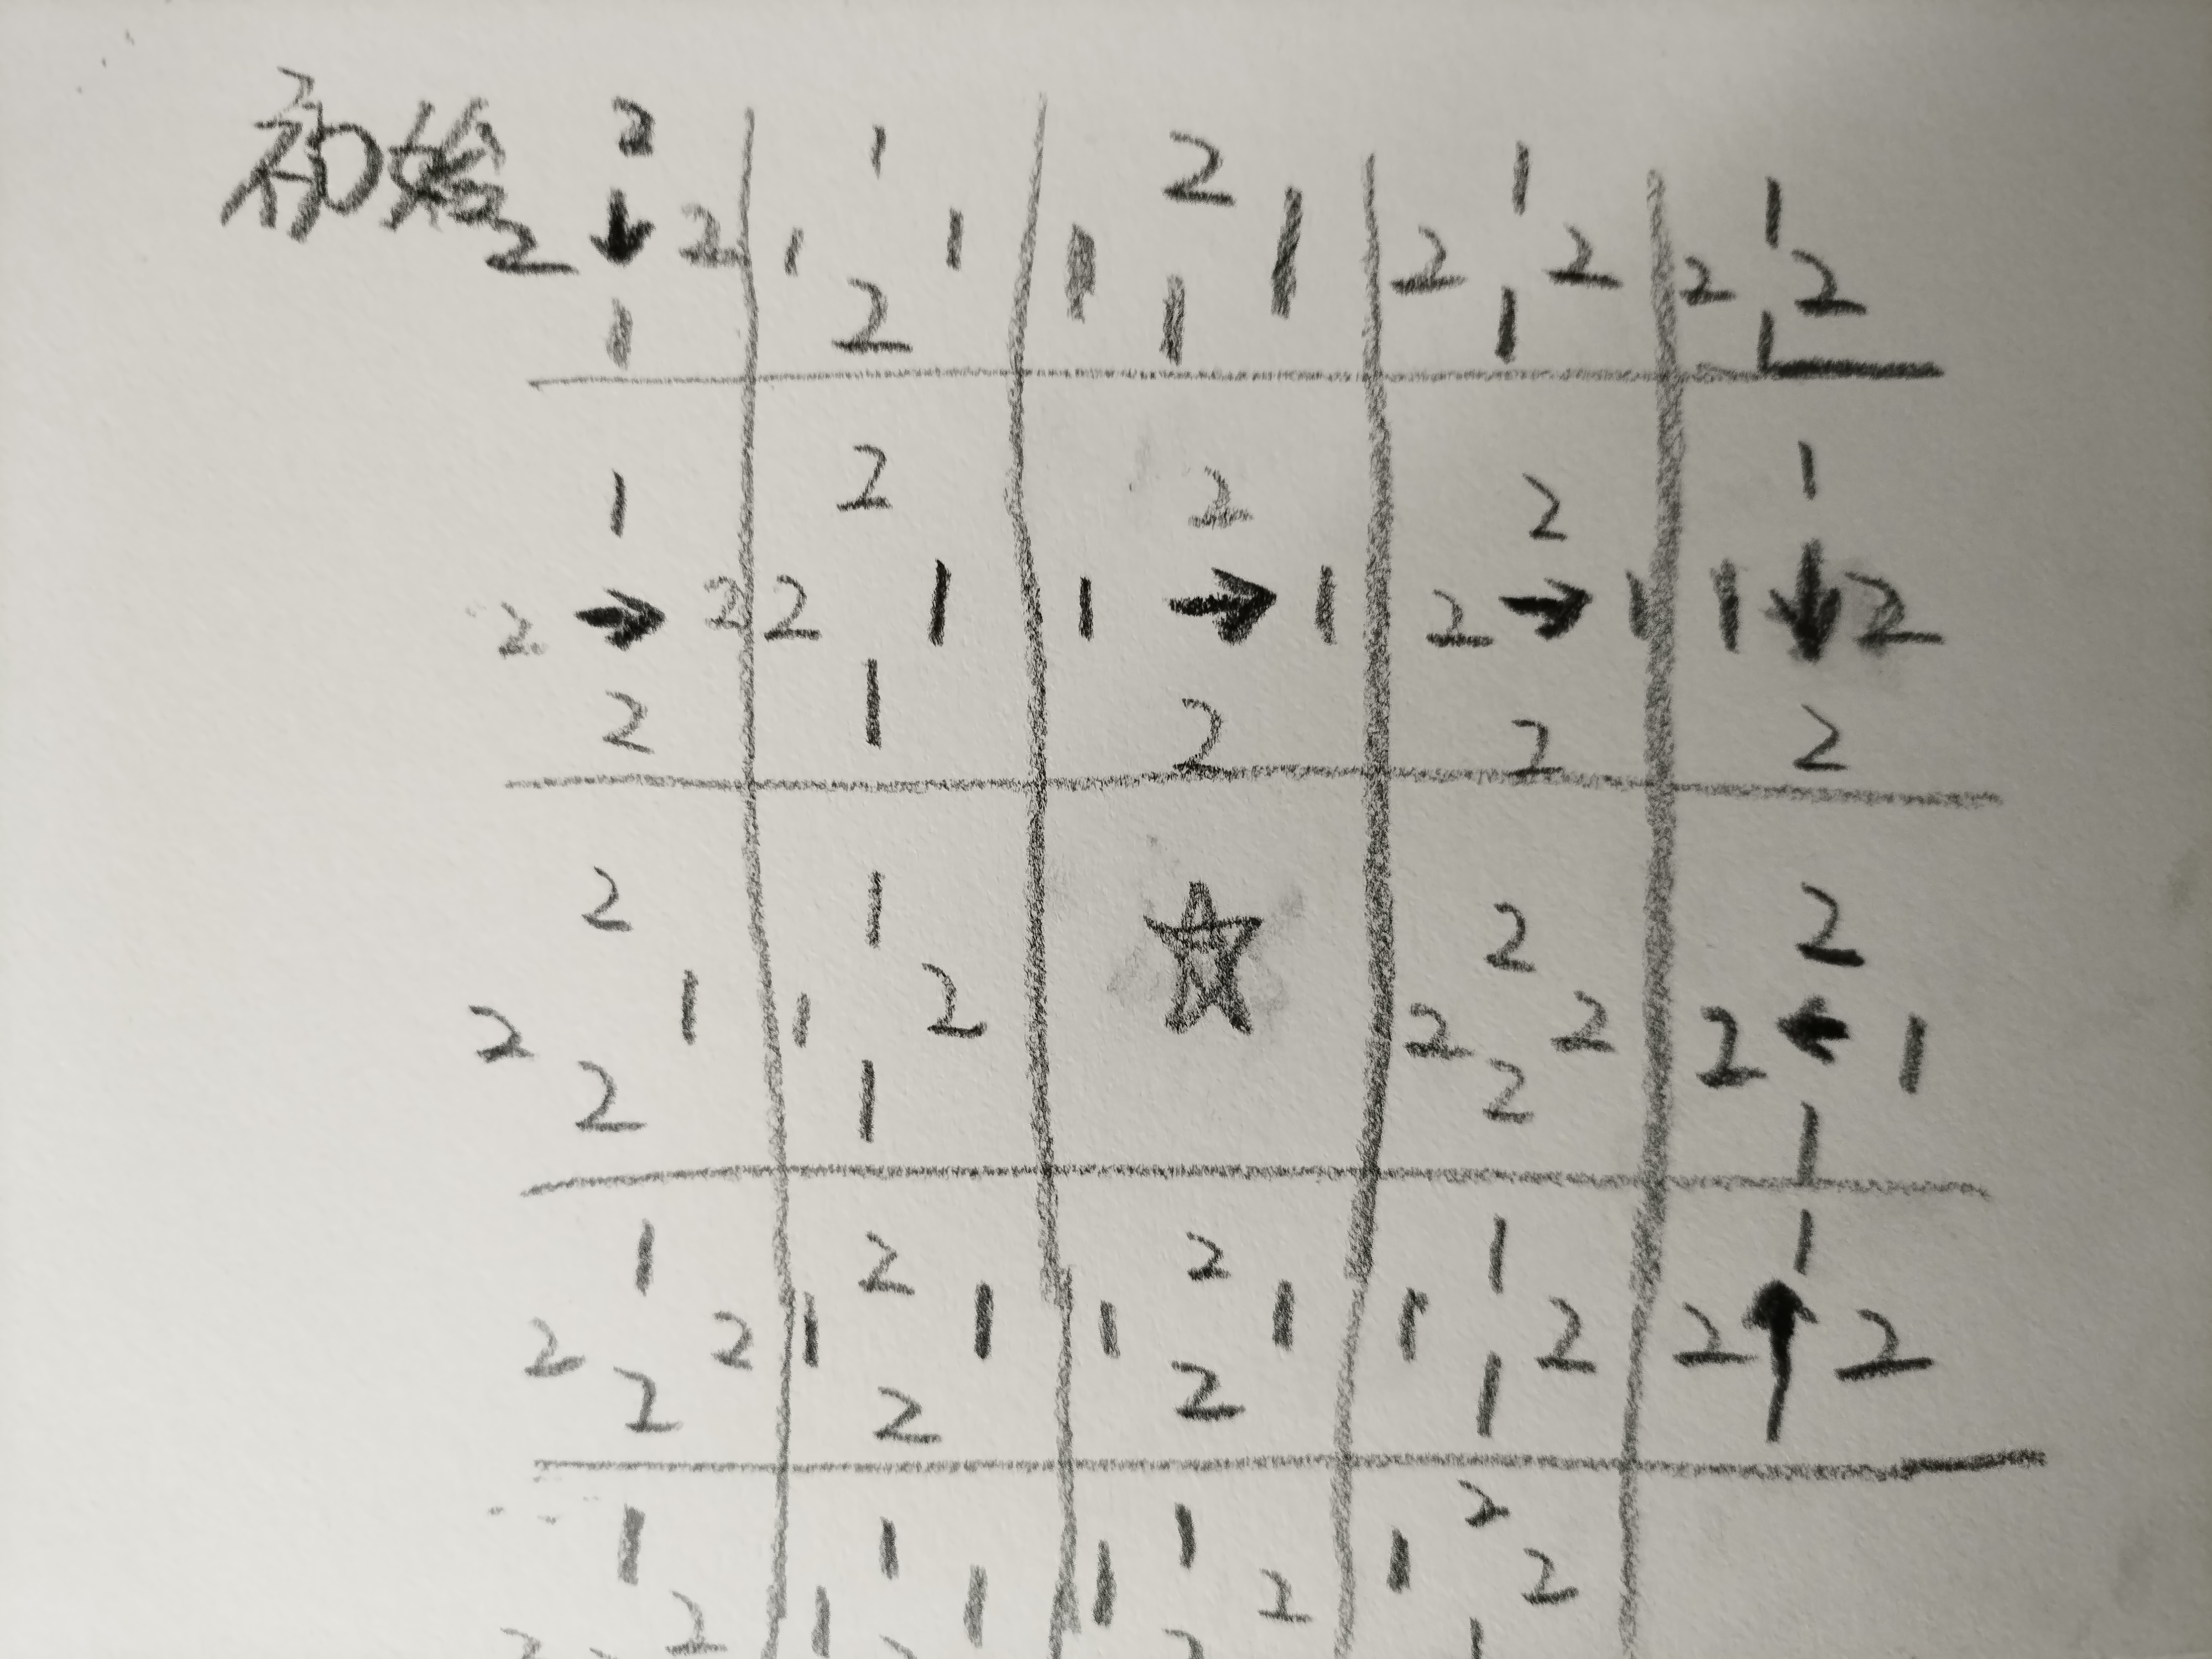 初始 2 1 2 1 1
2 ↓ 2 1 1 1 1 2 2 2 2
1 2 1 1 1
1 2 2 2 1
2 → 2 2 1 1 → 1 2 → 1 1 ↓ 2
2 1 2 2 2
2 1 2 2
2 1 1 2 ☆ 2 2 2 ← 1
2 1 2 1
1 2 2 1 1
2 2 1 1 1 1 1 2 2 ↑ 2
2 2 2 1
1 1 1 2
2 1 1 1 2 1 2